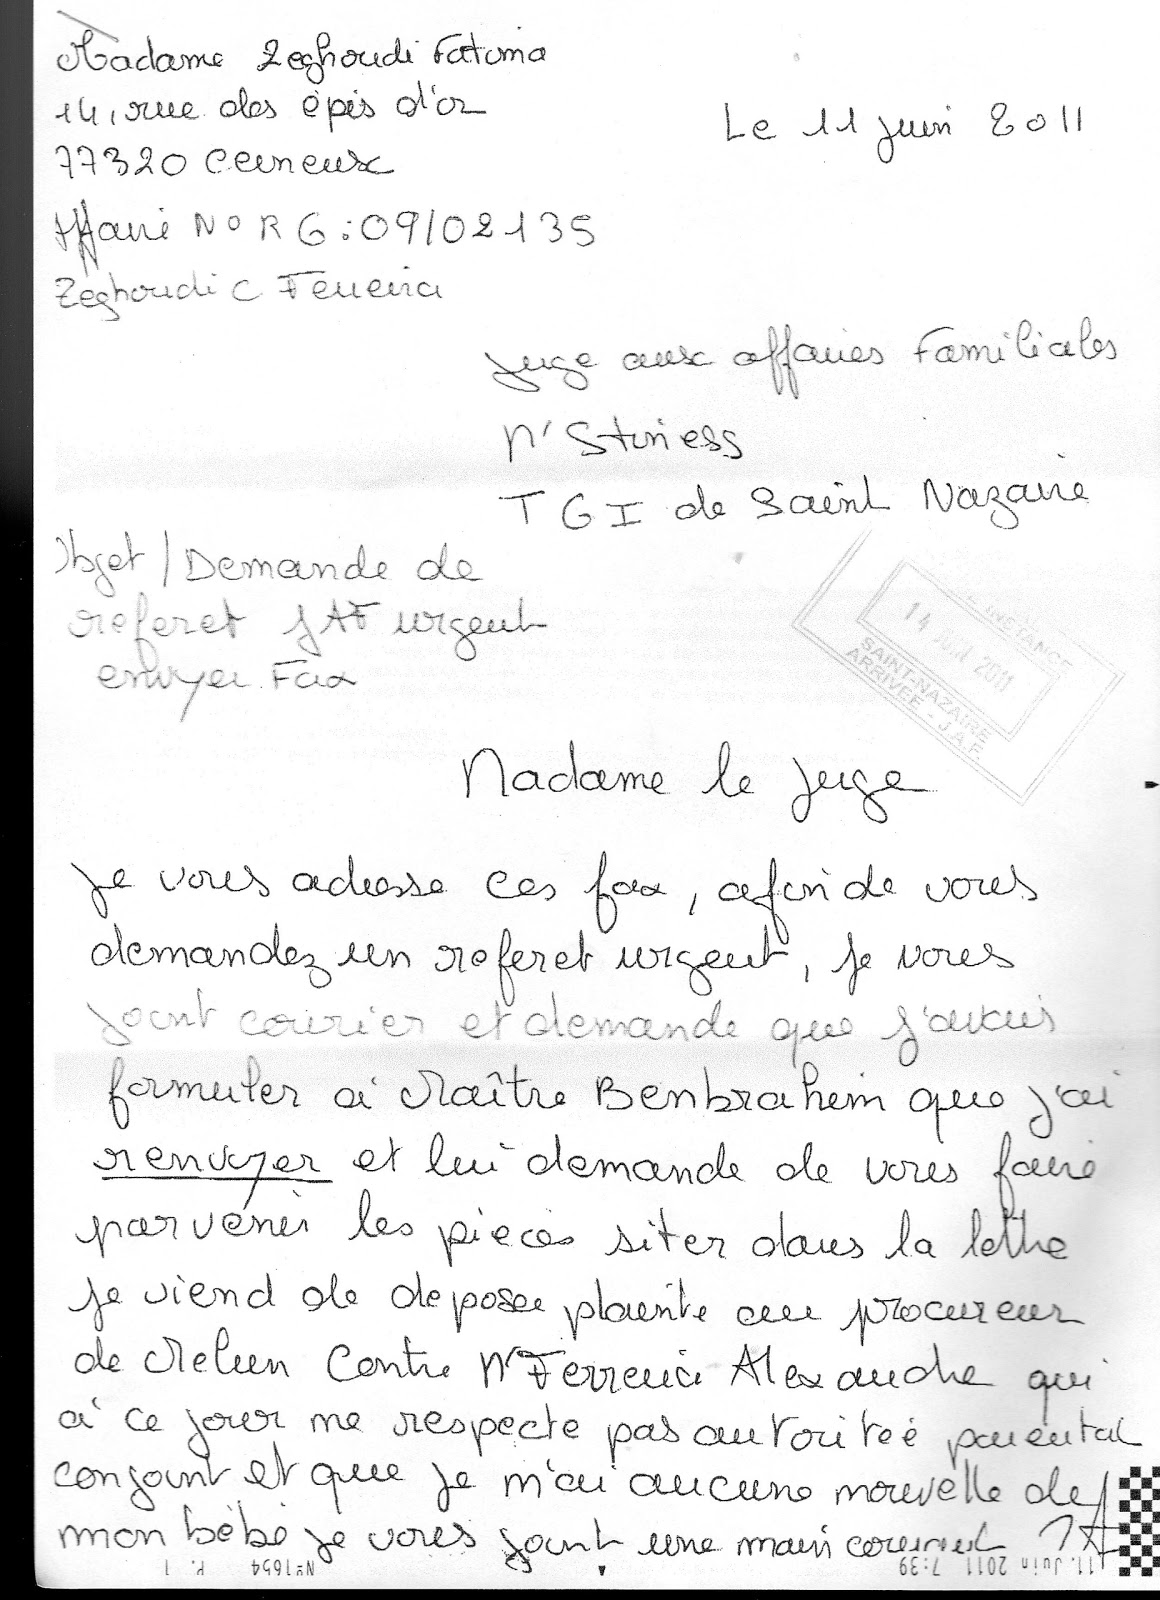 Madame Zeghoudi Fatima
14, rue des épis d'or
Le 11 juin 2011
77320 Cerneux
Affaire N° RG : 09/02135
Zeghoudi C Ferreira
juge aux affaires Familiales
M' Stiness
TGI de Saint Nazaire
Objet / Demande de
referet JAF urgent
envoyer Fax
INSTANCE
14 JUIN 2011
SAINT-NAZAIRE
ARRIVÉE - J.A.F.
Madame le juge
je vous adresse ces fax, afin de vous
demandez un referet urgent, je vous
joint courrier et demande que j'avais
formuler à Maître Benbrahim que j'ai
renvoyer et lui demande de vous faire
parvenir les pieces siter dans la lettre
je viend de deposer plainte au procureur
de Melun Contre M' Ferreira Alexandre qui
a ce jour ne respecte pas autoriteé parental
conjoint et que je n'ai aucune nouvelle de
mon bébé je vous joint une main courrent 1A
11. Juin 2011 7:39
N°1694 P. 1